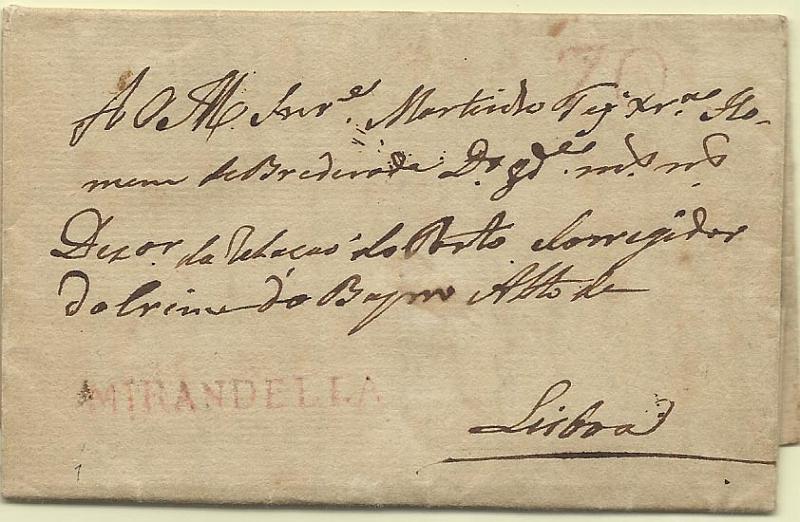 70
A O Ill. Snr. Martinho Teixr.ª Ho-
mem de Brederode D.s gd.e m.s n.s
Dezor. da Relacaõ do Porto Corregidor
do Crime do Bayrro Alto de
MIRANDELLA
Lisboa
1